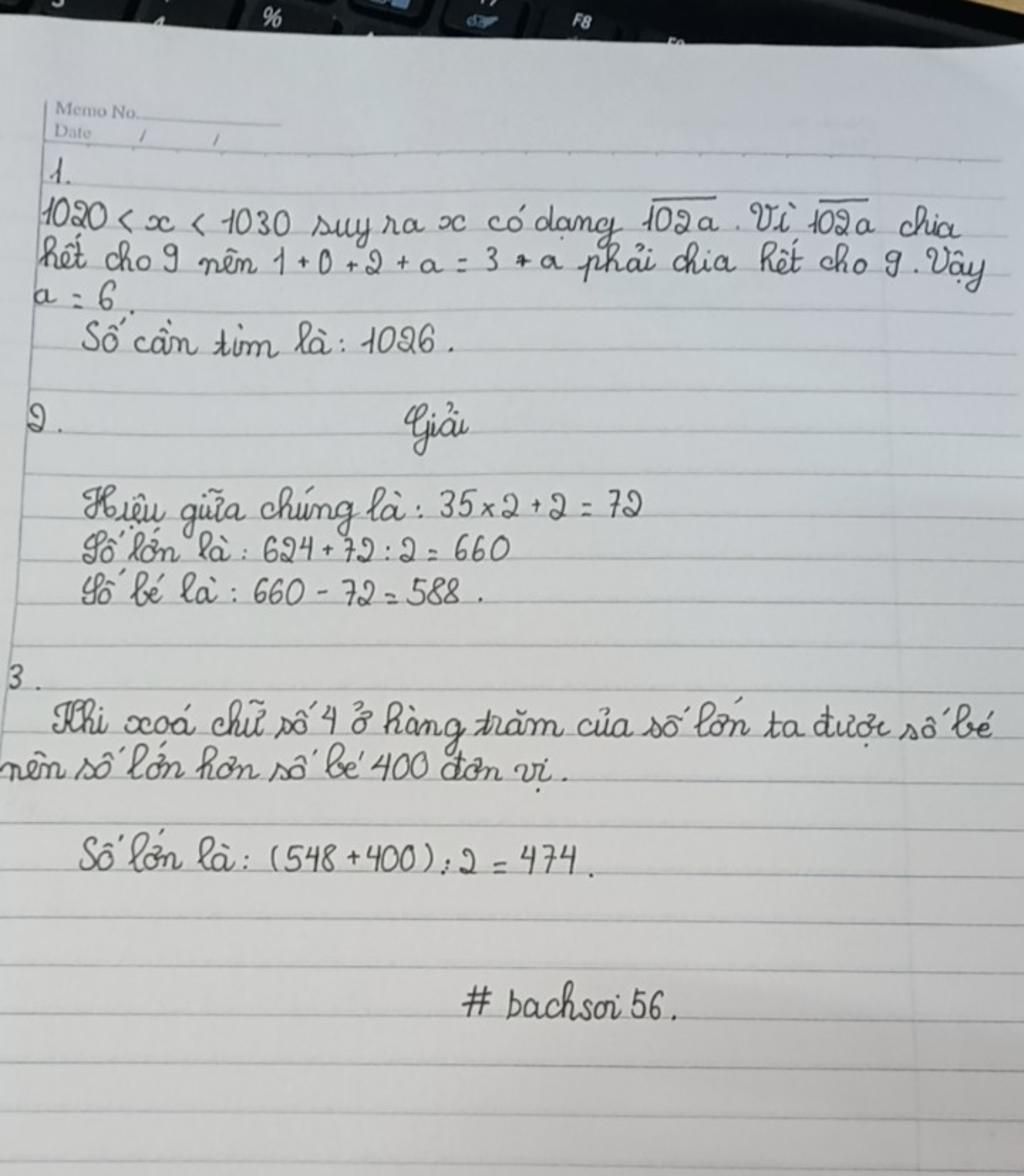 %
F8
Memo No.
Date / /
1.
1020 < x < 1030 suy ra x có dạng \overline{102a}. Vì \overline{102a} chia
hết cho 9 nên 1 + 0 + 2 + a = 3 + a phải chia hết cho 9. Vậy
a = 6.
Số cần tìm là: 1026.
2.
Giải
Hiệu giữa chúng là: 35 x 2 + 2 = 72
Số lớn là: 624 + 72 : 2 = 660
Số bé là: 660 - 72 = 588.
3.
Khi xoá chữ số 4 ở hàng trăm của số lớn ta được số bé
nên số lớn hơn số bé 400 đơn vị.
Số lớn là: (548 + 400) : 2 = 474.
# bachsoi 56.